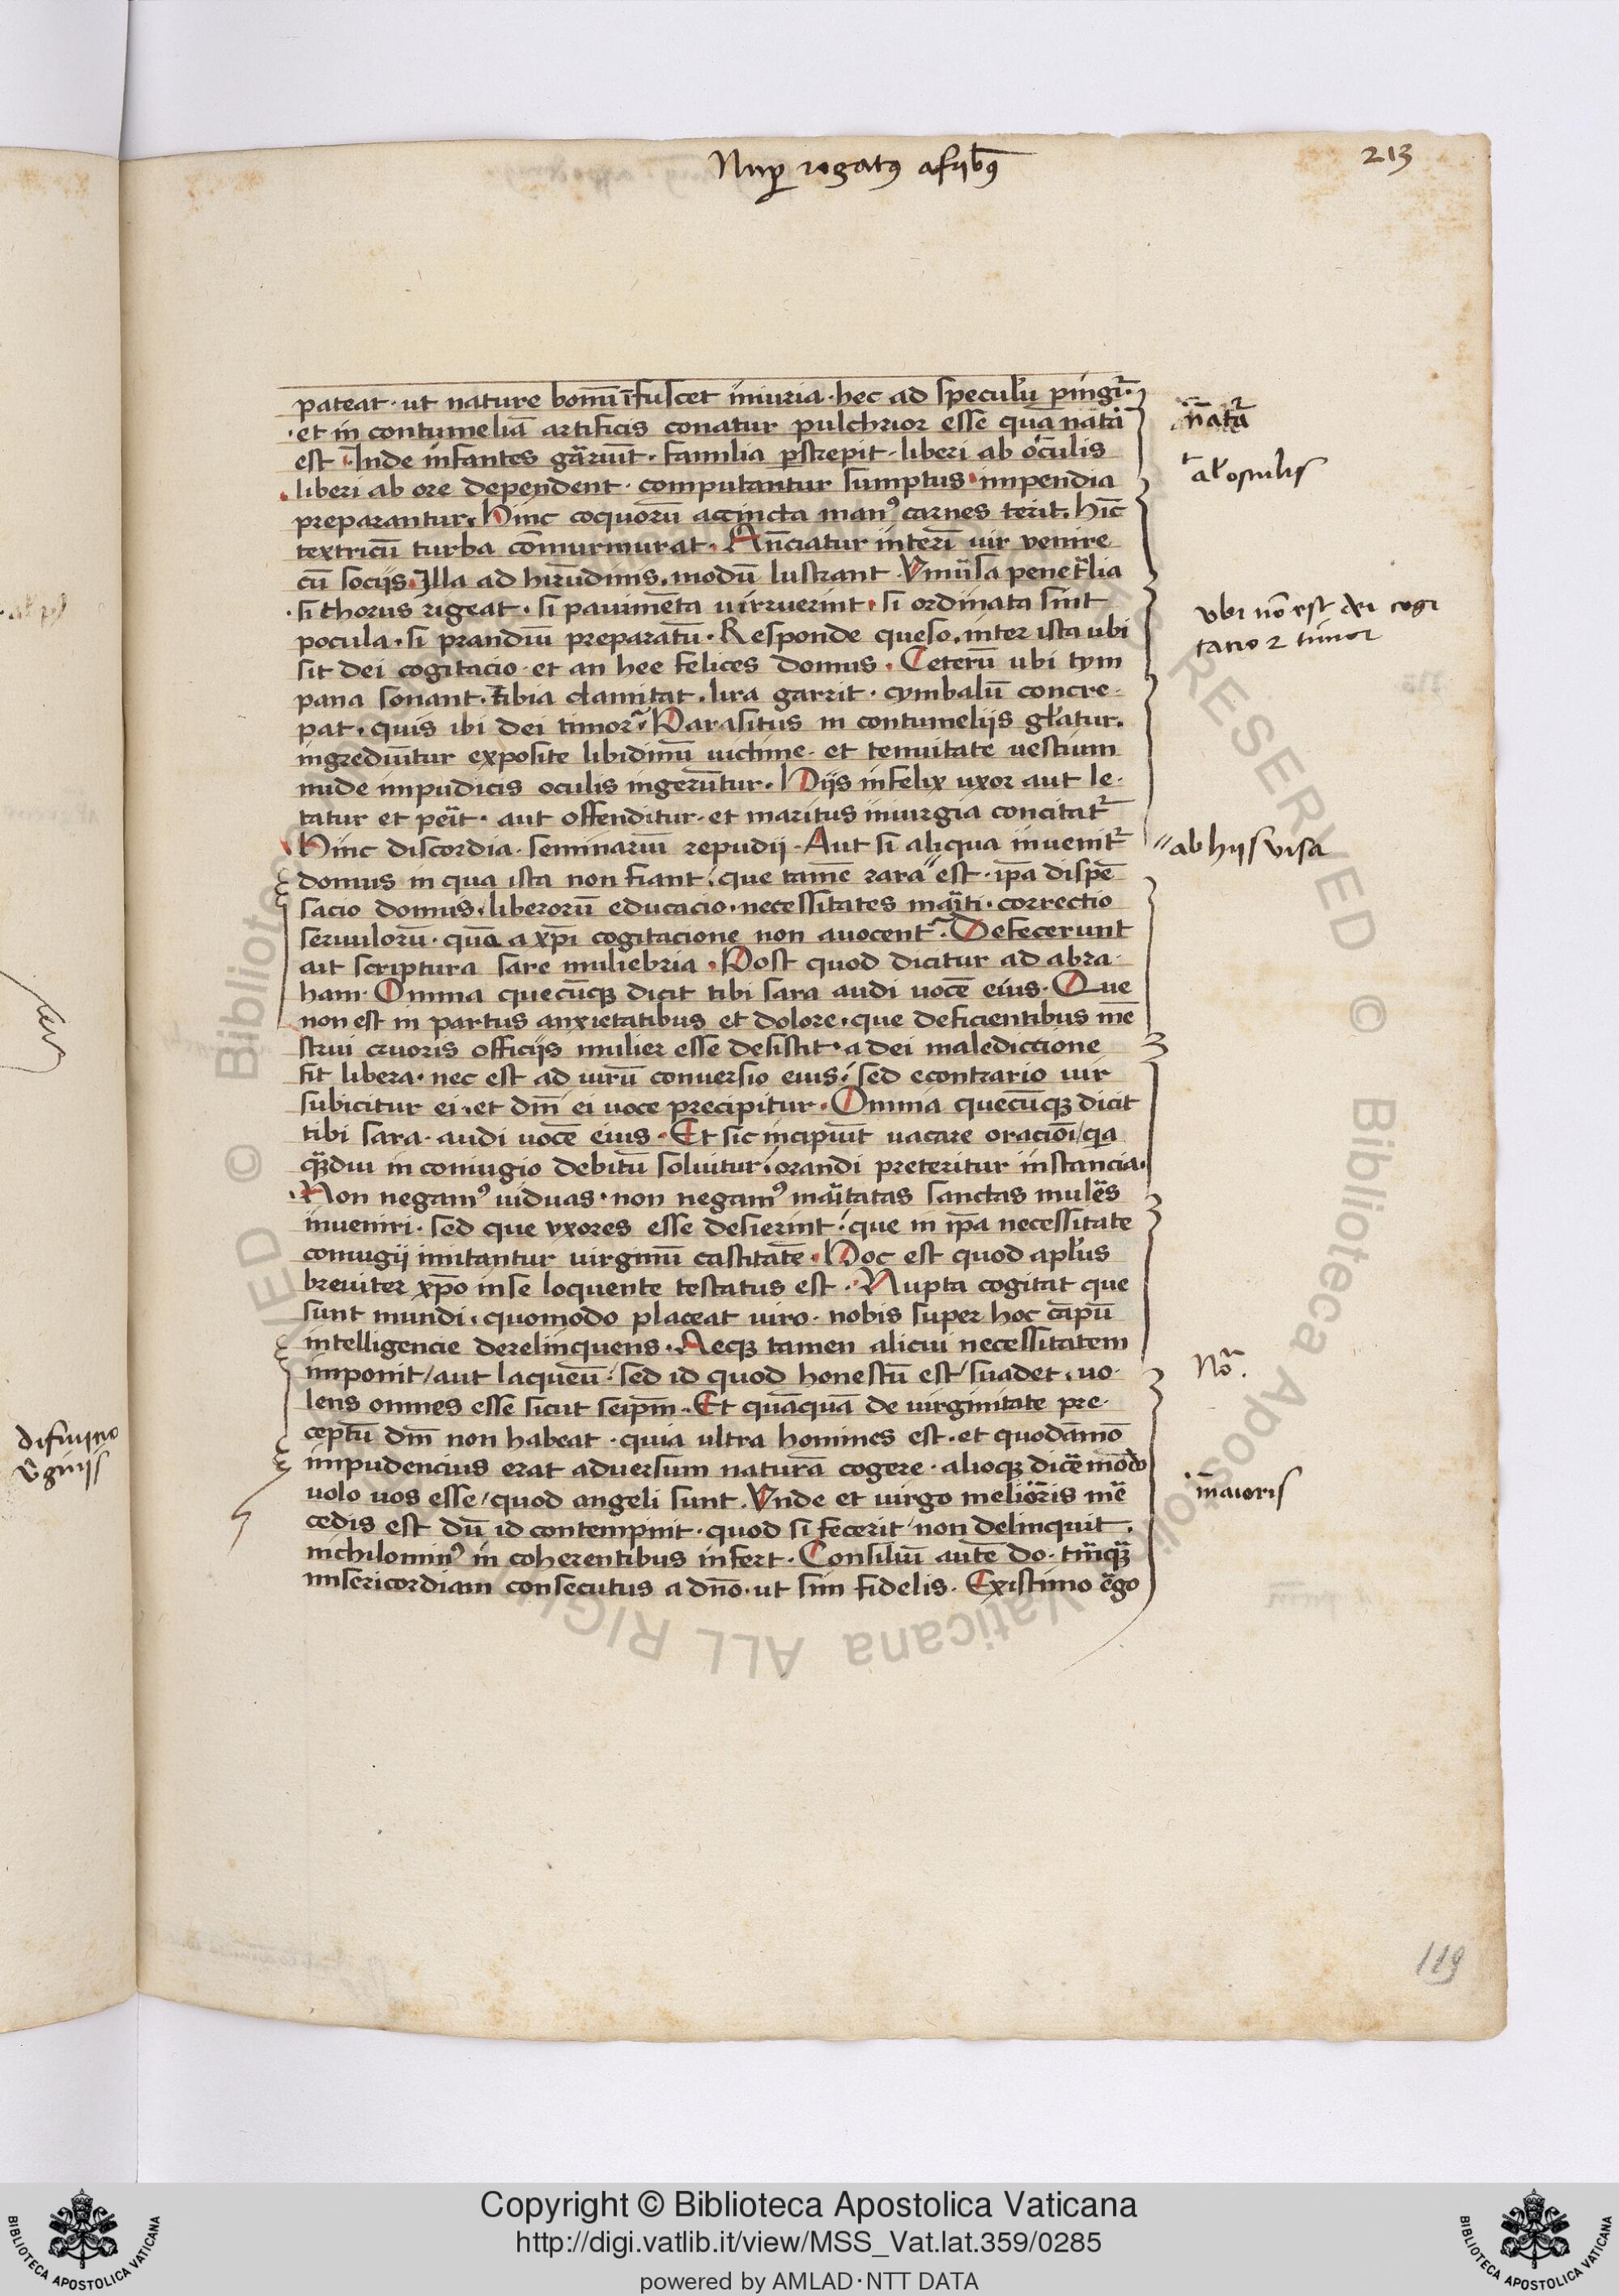 Nup̱ rogatꝰ a frībꝰ
213
pateat · ut nature bonū īfuscet iniuria · hec ad speculū pingit᷑ ·
· et in contumeliā artificis conatur pulchrior esse quā nata
est · Inde infantes garriūt · familia p̱strepit · liberi ab oculis
liberi ab ore dependent · computantur sumptus · impendia
preparantur · Hinc coquorū accincta manꝰ carnes terit · hīc
textricū turba cōmurmurat · Añciatur interī uir venire
cū sociis · Illa ad hirūdinis · modū lustrant Vniūsa penetͣlia
· si thorus rigeat · si pauimēta uirruerint · si ordinata sint
pocula · si prandiū preparatū · Responde queso · inter ista ubi
sit dei cogitacio · et an hee felices domus · Ceterū ubi tym
pana sonant · tibia clamitat · lira garrit · cymbalū concre-
pat · quis ibi dei timor · Parasitus in contumeliis głatur ·
ingrediūtur exposite libidinū uictime · et tenuitate uestium
nude impudicis oculis ingerūtur · Hiis infelix uxor aut le-
tatur et perit · aut offenditur · et maritus in iurgia concitat᷑
Hinc discordia · seminariū repudij · Aut si aliqua inuenit᷑
domus in qua ista non fiant · que tamē rara〃 est · ip̄a dispē
sacio domus · liberorū educacio · necessitates mariti · correctio
seruulorū · quā a xp̄i cogitacione non auocent᷑ · Defecerunt
ait scriptura sare muliebria · Post quod dicitur ad abra-
ham · Omnia quecūqꝫ dicit tibi sara audi uocē eius · Que
non est in partus anxietatibus et dolore · que deficientibus mē
strui cruoris officijs mulier esse desistit · a dei malediccione
fit libera · nec est ad uirū conuersio eius · sed econtrario uir
subicitur ei · et dn̄i ei uoce precipitur · Omnia quecūqꝫ dicit
tibi sara · audi uocē eius · Et sic incipiūt uacare oracioī / qa
qͣꝫdiu in coniugio debitū soluitur · orandi preteritur instancia ·
· Non negamꝰ uiduas · non negamꝰ maritatas sanctas mulēs
inueniri · sed que vxores esse desierint · que in ip̄a necessitate
coniugij imitantur uirginū castitatē · Hoc est quod apłus
breuiter xp̄o in se loquente testatus est · Nupta cogitat que
sunt mundi · quomodo placeat uiro · nobis super hoc cāpū
intelligencie derelinquens · Neqꝫ tamen alicui necessitatem
imponit / aut laqueū · sed id quod honestū est / suadet · uo-
lens omnes esse sicut seip̄m · Et quāquā de uirginitate pre-
ceptū dn̄i non habeat · quia ultra homines est · et quodāmō
impudencius erat aduersum naturā cogere · alioqꝫ dicē mōdo
uolo uos esse / quod angeli sunt · Vnde et uirgo melioris mē
cedis est dū id contempnit · quod si fecerit / non delinquit ·
nichilominꝰ in coherentibus infert · Consiliū autē do · tāqͣꝫ
misericordiam consecutus a dn̄o · ut sim fidelis · Existimo ego
nat᷑
ał osculis
vbi nō est dei cogi
tatio ⁊ timor
〃 ab hijs visa
Noͣ.
maioris
119
Copyright © Biblioteca Apostolica Vaticana
http://digi.vatlib.it/view/MSS_Vat.lat.359/0285
powered by AMLAD·NTT DATA
BIBLIOTECA APOSTOLICA VATICANA
BIBLIOTECA APOSTOLICA VATICANA